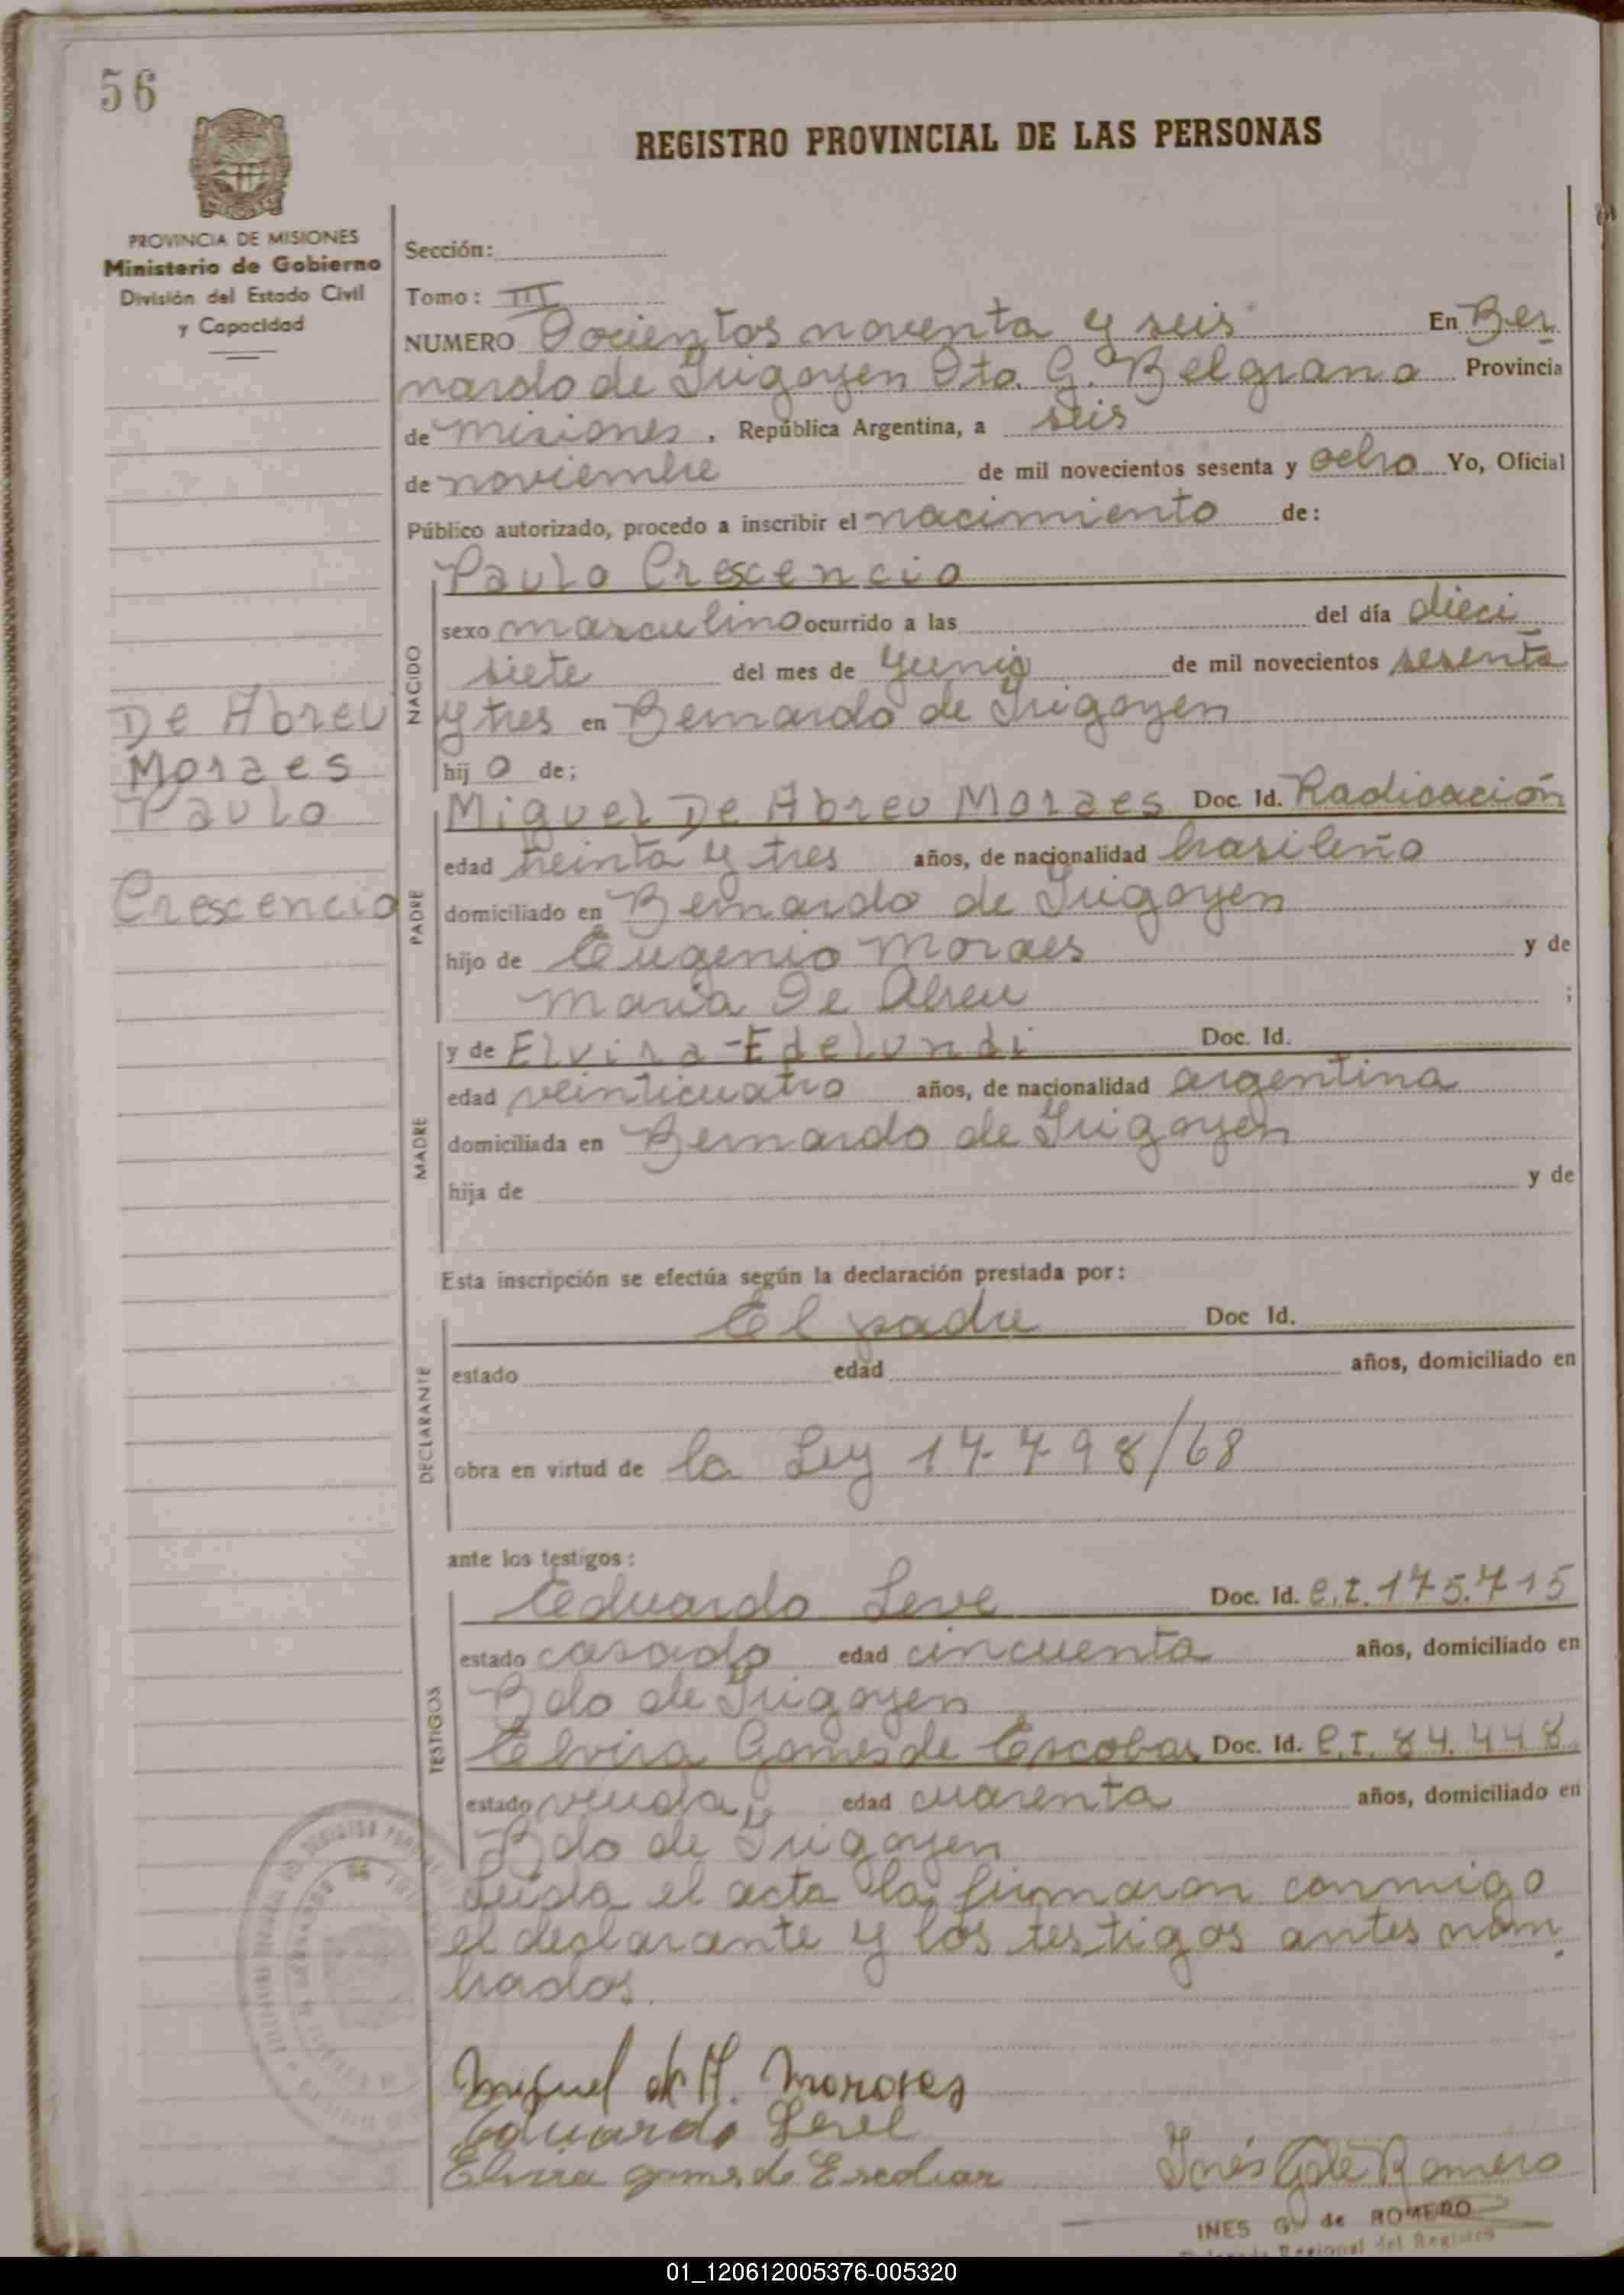 56
REGISTRO PROVINCIAL DE LAS PERSONAS
PROVINCIA DE MISIONES
Ministerio de Gobierno
División del Estado Civil
y Capacidad
Sección:
Tomo: III
NUMERO Docientos noventa y seis En Ber
nardo de Irigoyen Dto. G. Belgrano Provincia
de Misiones, República Argentina, a seis
de noviembre de mil novecientos sesenta y ocho Yo, Oficial
Público autorizado, procedo a inscribir el nacimiento de:
Paulo Crescencio
NACIDO
sexo masculino ocurrido a las del día dieci
siete del mes de Junio de mil novecientos sesenta
y tres en Bernardo de Irigoyen
hijo de;
De Abreu
Moraes
Paulo
Crescencio
PADRE
Miguel De Abreu Moraes Doc. Id. Radicación
edad treinta y tres años, de nacionalidad brasileño
domiciliado en Bernardo de Irigoyen
hijo de Eugenio Moraes y de
Maria De Abreu ;
MADRE
y de Elvira Edelundi Doc. Id.
edad veinticuatro años, de nacionalidad argentina
domiciliada en Bernardo de Irigoyen
hija de y de
Esta inscripción se efectúa según la declaración prestada por:
DECLARANTE
El padre Doc Id.
estado edad años, domiciliado en
obra en virtud de la Ley 17798/68
ante los testigos:
TESTIGOS
Eduardo Leve Doc. Id. C.I. 175.715
estado casado edad cincuenta años, domiciliado en
Bdo de Irigoyen
Elvira Gomes de Escobar Doc. Id. C.I. 84.448
estado viuda edad cuarenta años, domiciliado en
Bdo de Irigoyen
Leida el acta la firmaron conmigo
el declarante y los testigos antes nom
brados.
Miguel de A. Moraes
Eduardo
Elvira gomes de Escobar Inés G de Romero
INES G. de ROMERO
Regional del Registro
01_120612005376-005320